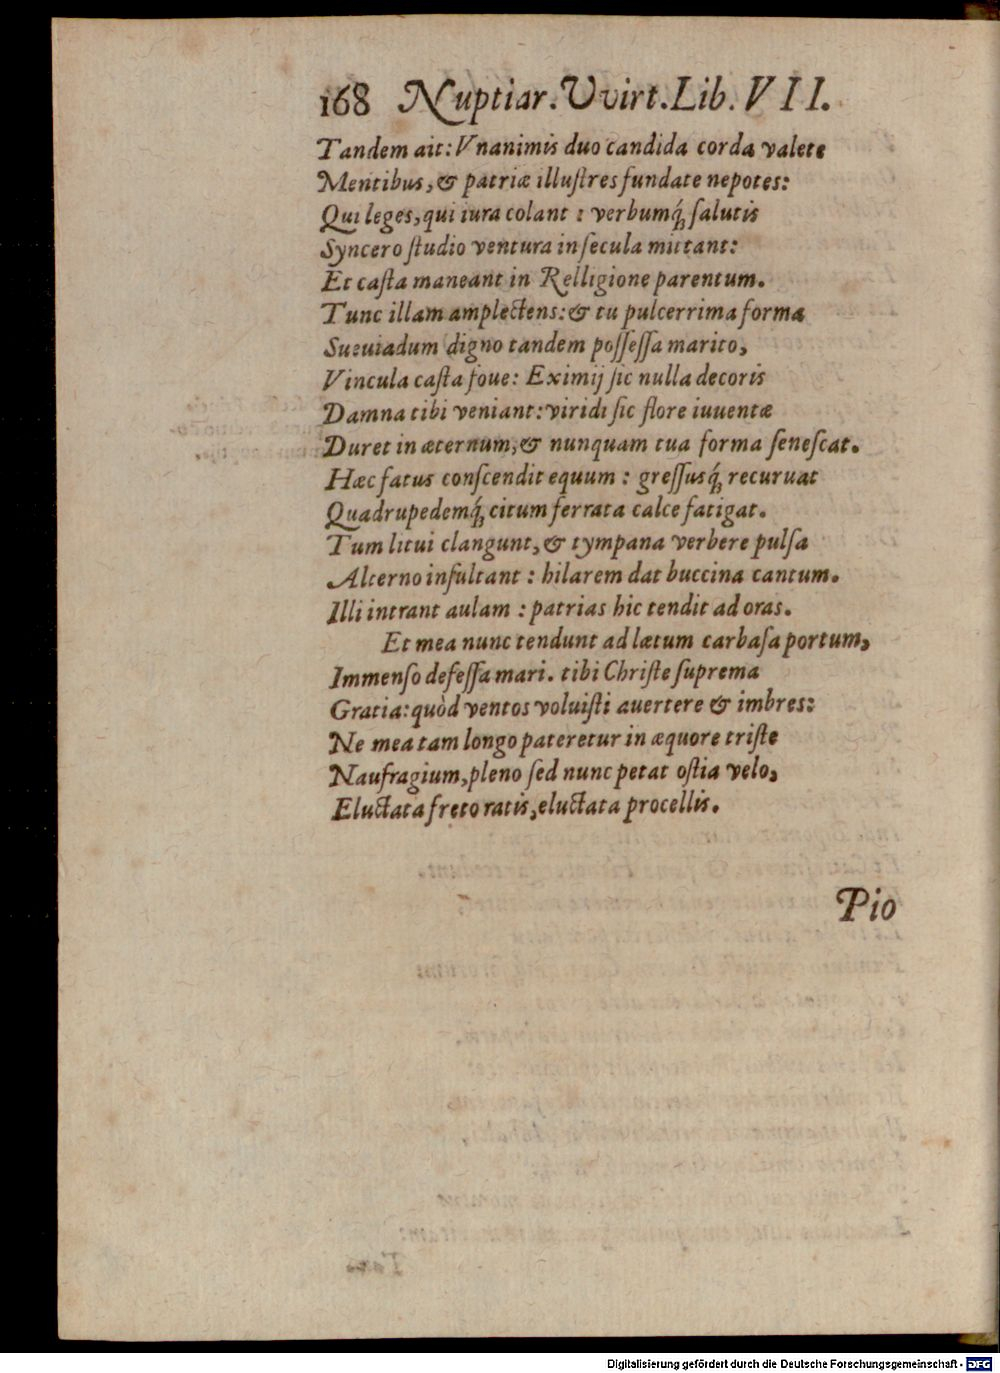 168 Nuptiar. Vvirt. Lib. VII.
Tandem ait: Vnanimis duo candida corda valete
Mentibus, & patriæ illuſtres fundate nepotes:
Qui leges, qui iura colant: verbumq́; ſalutis
Syncero ſtudio ventura in ſecula mittant:
Et caſta maneant in Relligione parentum.
Tunc illam amplectens: & tu pulcerrima forma
Sueuiadum digno tandem poſſeſſa marito,
Vincula caſta foue: Eximij ſic nulla decoris
Damna tibi veniant: viridi ſic flore iuuentæ
Duret in æternum, & nunquam tua forma ſeneſcat.
Hæc fatus conſcendit equum: greſſusq́; recuruat
Quadrupedemq́; citum ferrata calce fatigat.
Tum litui clangunt, & tympana verbere pulſa
Alterno inſultant: hilarem dat buccina cantum.
Illi intrant aulam: patrias hic tendit ad oras.
Et mea nunc tendunt ad lætum carbaſa portum,
Immenſo defeſſa mari. tibi Chriſte ſuprema
Gratia: quòd ventos voluiſti auertere & imbres:
Ne mea tam longo pateretur in æquore triſte
Naufragium, pleno ſed nunc petat oſtia velo,
Eluctata freto ratis, eluctata procellis.
Pio
Digitalisierung gefördert durch die Deutsche Forschungsgemeinschaft - DFG